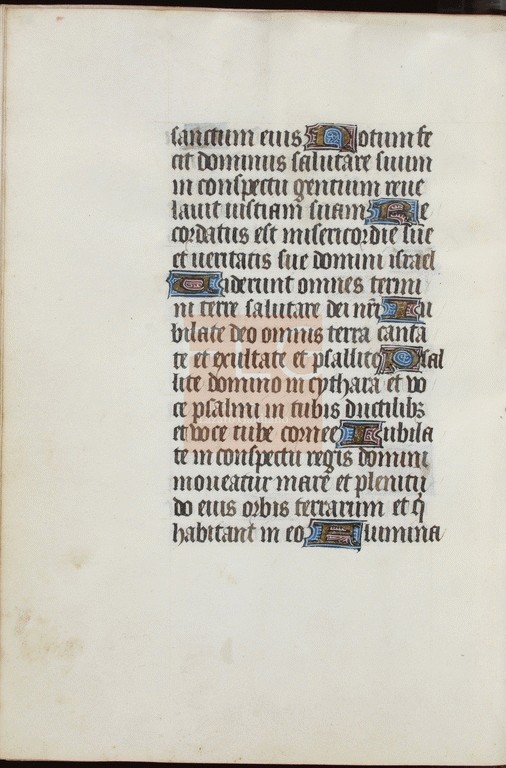 sanctum eius Notum fe
cit dominus salutare suum
in conspectu gentium reue
lauit iusticiam suam Re
cordatus est misericordie sue
et ueritatis sue domini israel
Uiderunt omnes termi
ni terre salutare dei nr̄i Iu
bilate deo omnis terra canta
te et exultate et psallite Psal
lite domino in cythara et uo
ce psalmi in tubis ductilibꝫ
et uoce tube cornee Iubila
te in conspectu regis domini
moueatur mare et plenitu
do eius orbis terrarum et q̄
habitant in eo Flumina